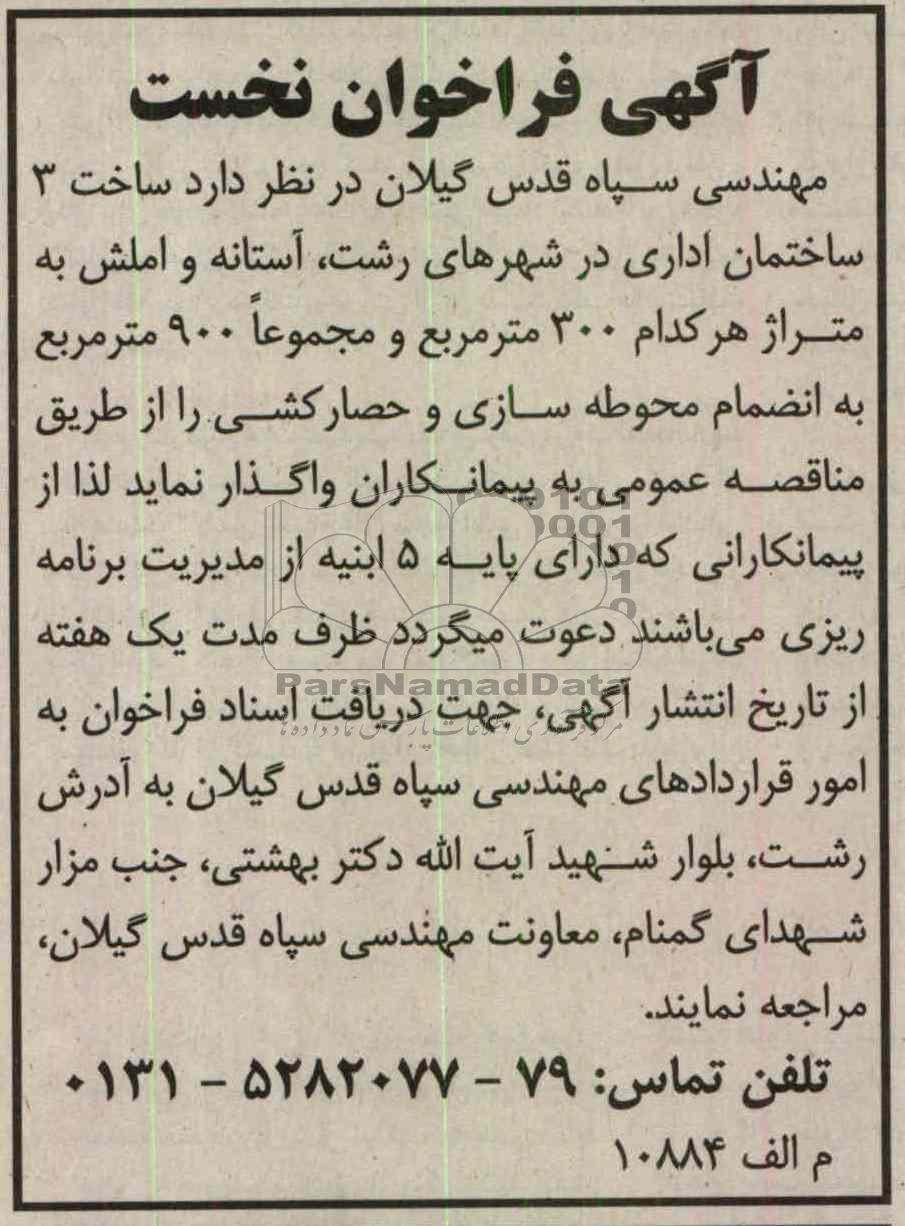 آگهی فراخوان نخست
مهندسی سپاه قدس گیلان در نظر دارد ساخت ۳
ساختمان اداری در شهرهای رشت، آستانه و املش به
متراژ هرکدام ۳۰۰ مترمربع و مجموعاً ۹۰۰ مترمربع
به انضمام محوطه سازی و حصارکشی را از طریق
مناقصه عمومی به پیمانکاران واگذار نماید لذا از
پیمانکارانی که دارای پایه ۵ ابنیه از مدیریت برنامه
ریزی می‌باشند دعوت میگردد ظرف مدت یک هفته
ParsNamadData
از تاریخ انتشار آگهی، جهت دریافت اسناد فراخوان به
امور قراردادهای مهندسی سپاه قدس گیلان به آدرش
رشت، بلوار شهید آیت الله دکتر بهشتی، جنب مزار
شهدای گمنام، معاونت مهندسی سپاه قدس گیلان،
مراجعه نمایند.
تلفن تماس: ۷۹ - ۵۲۸۲۰۷۷ - ۰۱۳۱
م الف ۱۰۸۸۴